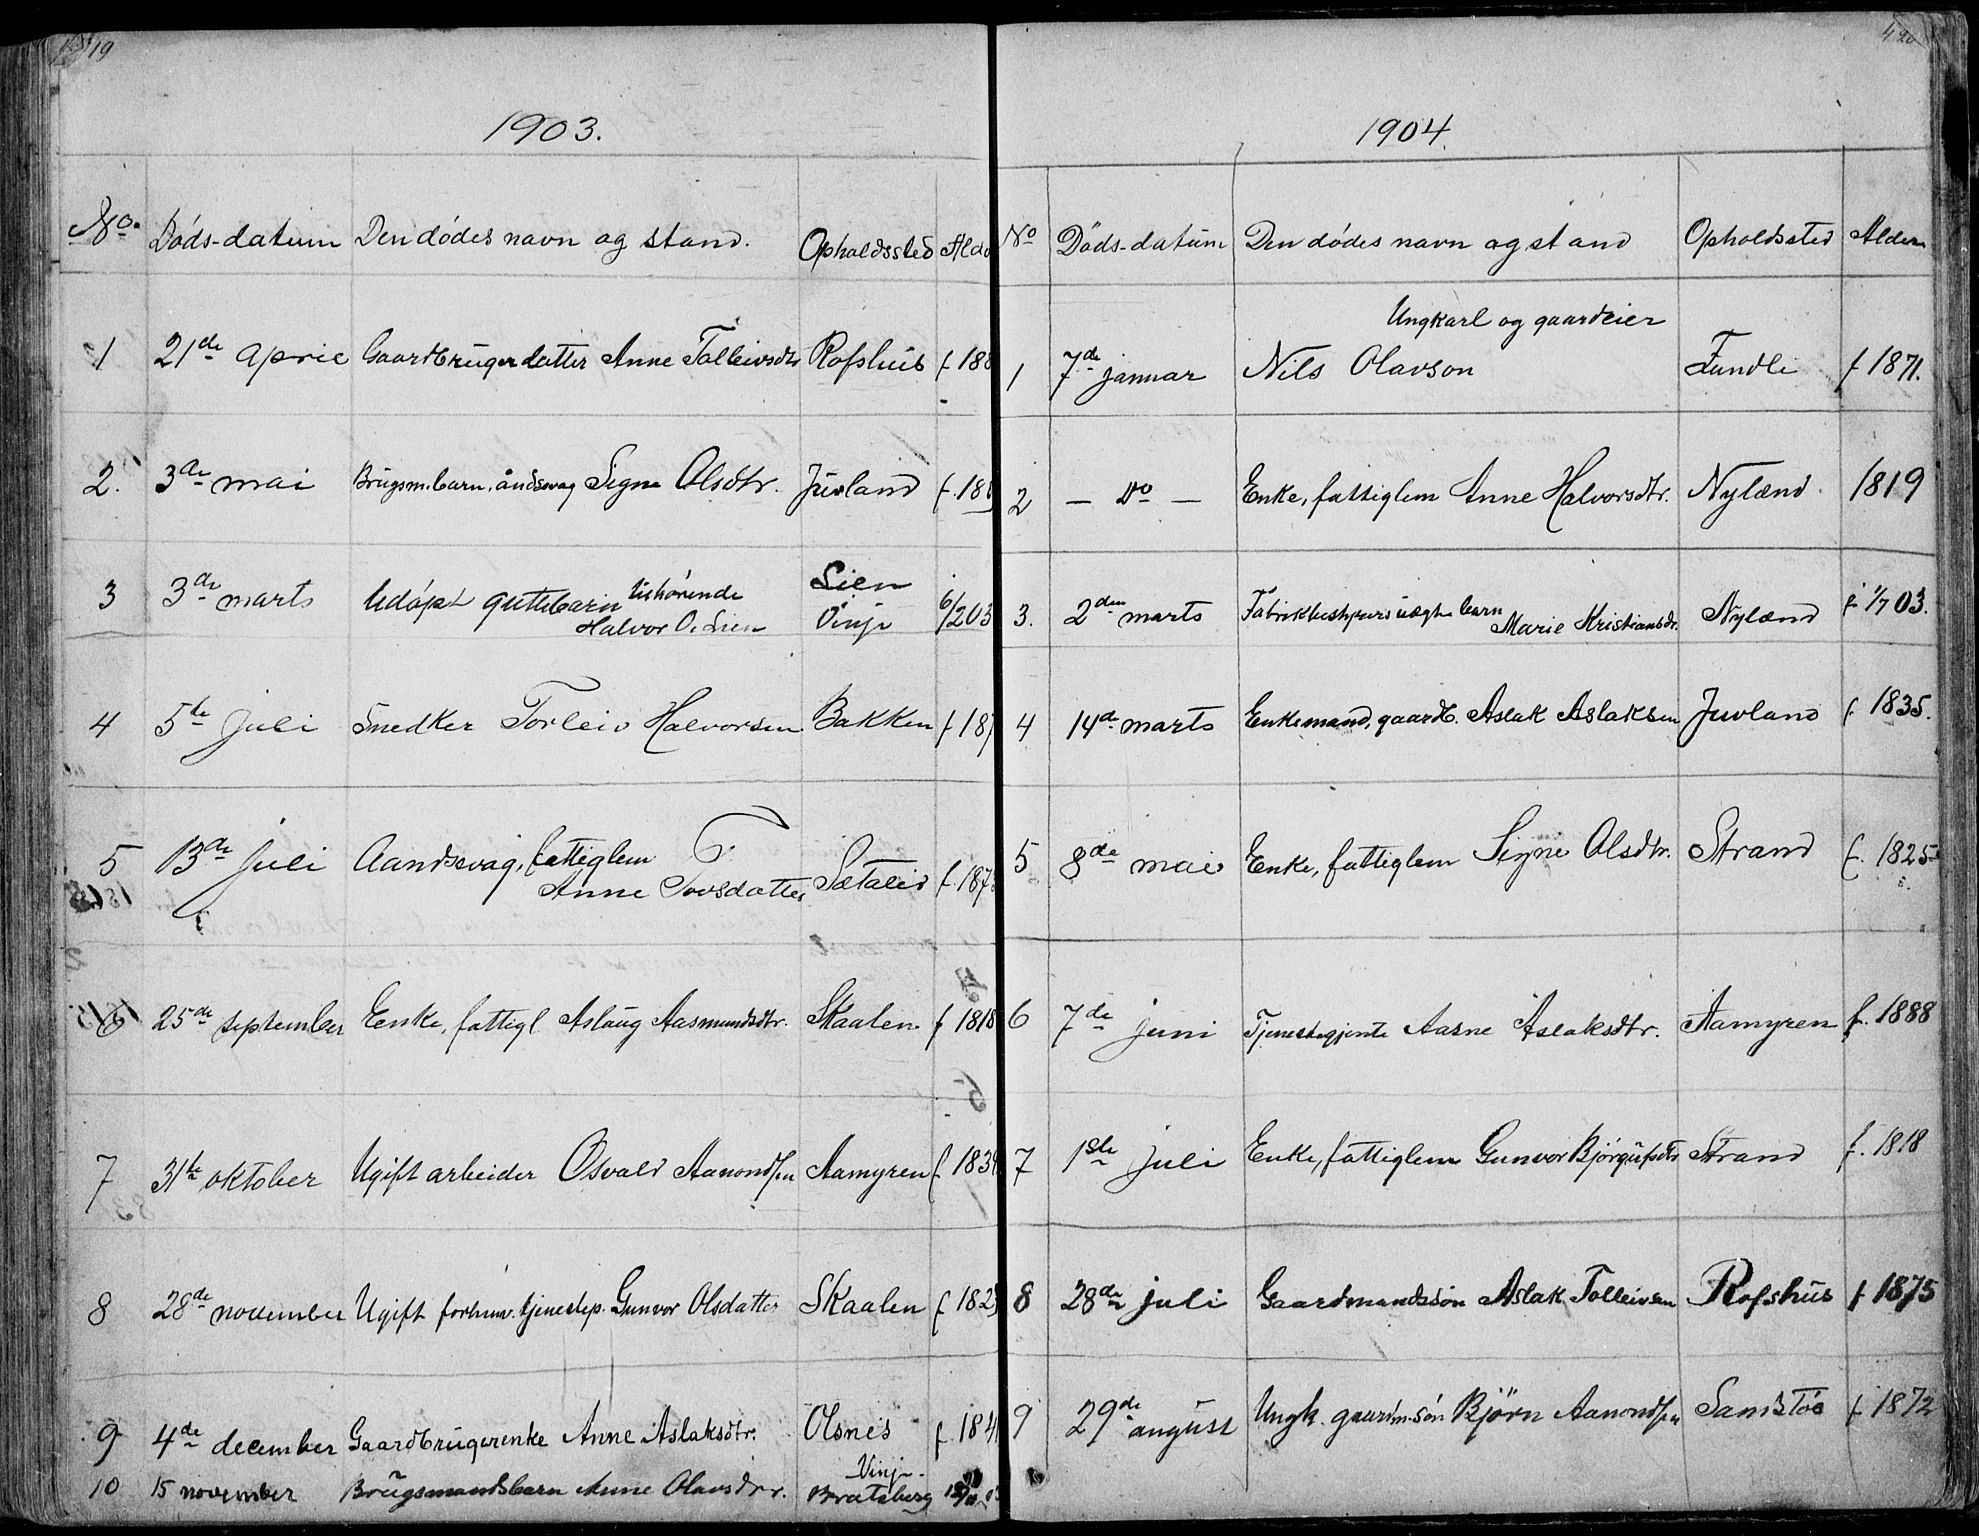 19
1903.
No. Döds-datum Den dödes navn og stand. Opholdssted Alde
1 21de april Gaardbrugerdatter Anne Tolleivsdtr Rofshus f 188
2. 3de mai Brugsm.barn, åndssvag Signe Olsdtr. Juvland f. 18
3 3de marts Udöpt guttebarn tilhörende Lien
Halvor O. Lien Vinje 6/2 03
4 5te juli Snedker Torleiv Halvorsen Bakken f 187
5 13de juli Aandssvag, fattiglem
Anne Tovsdatter Sætaleid f. 187
6 25de september Enke, fattigl. Aslaug Aasmundsdtr. Skaalen f 1818
7 31te oktober Ugift arbeider Osvald Aanondsen Aamyren f 183
8 28de november Ugift forhenv. tjenestep. Gunvor Olsdatter Skaalen f 182
9 4de december Gaardbrugerenke Anne Aslaksdtr. Olsnes f. 184
10 15 november Brugsmandsbarn Anne Olavsdtr. Vinje
Bratsberg
420
1904.
No Döds-datum Den dödes navn og stand Opholdssted Alder
Ungkarl og gaardeier
1 7de januar Nils Olavson Fundli f 1871.
2 — Do — Enke, fattiglem Anne Halvorsdtr. Nylænd 1819
3. 2den marts Fabrikbestyrers uægte barn
Marie Kristiansdr. Nylænd f. 1/7 03.
4 14de marts Enkemand, gaardb. Aslak Aslaksen Juvland f. 1835.
5 8de mai Enke, fattiglem Signe Olsdtr. Strand f. 1825
6 7de juni Tjenestegjente Aasne Aslaksdtr. Aamyren f. 1888
7 1ste juli Enke, fattiglem Gunvor Björgufsdtr Strand f. 1818
8 28de juli Gaardmandssön Aslak Tolleivsen Rofshus f 1875
9 29de august Ungk. gaardm.sön Björn Aanondsen Sandstöe f. 1872